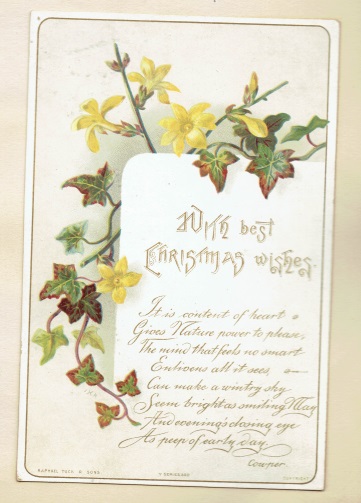 With best
Christmas wishes.
It is content of heart
Gives Nature power to please,
The mind that feels no smart
Enlivens all it sees,
Can make a wintry sky
Seem bright as smiling May
And evening's closing eye
As peep of early day.
Cowper.
RAPHAEL TUCK & SONS
COPYRIGHT